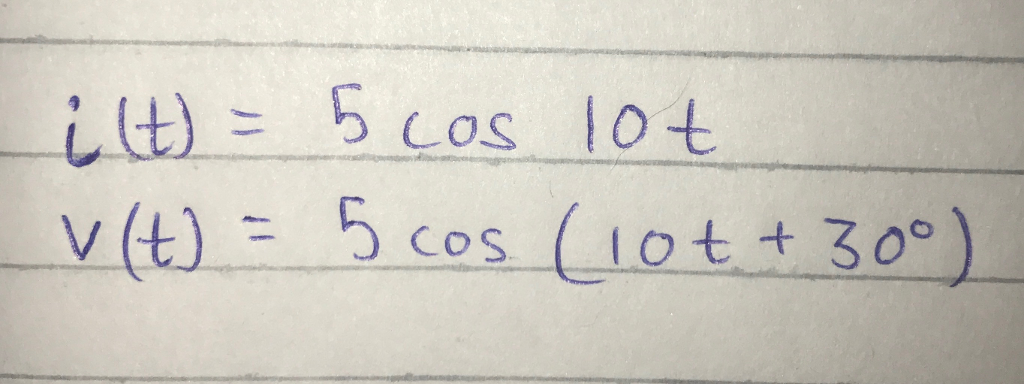 i(t) = 5 cos 10t
v(t) = 5 cos (10t + 30°)